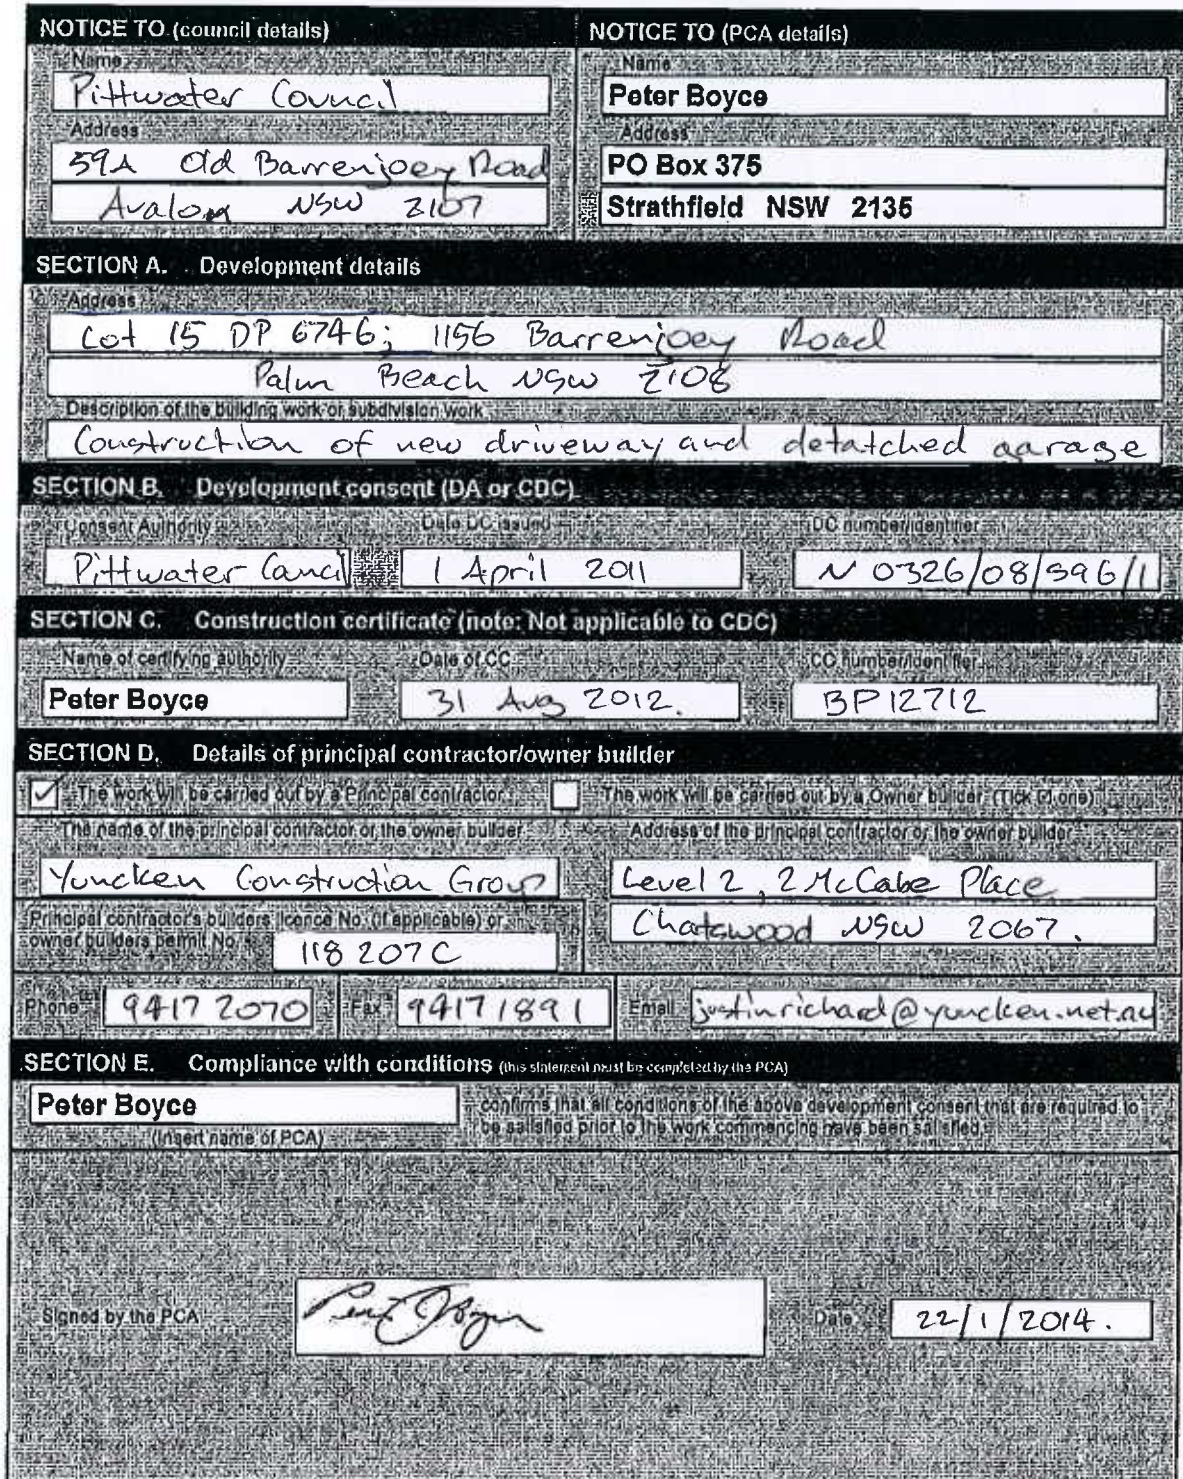 NOTICE TO (council details)
Name
Pittwater Council
Address
59A Old Barrenjoey Road
Avalon NSW 2107
NOTICE TO (PCA details)
Name
Peter Boyce
Address
PO Box 375
Strathfield NSW 2135
SECTION A. Development details
Address
Lot 15 DP 6746; 1156 Barrenjoey Road
Palm Beach NSW 2108
Description of the building work or subdivision work
Construction of new driveway and detatched garage
SECTION B. Development consent (DA or CDC)
Consent Authority Date DC issued DC number/identifier
Pittwater Council 1 April 2011 N 0326/08/S96/1
SECTION C. Construction certificate (note: Not applicable to CDC)
Name of certifying authority Date of CC CC number/identifier
Peter Boyce 31 Aug 2012. BP12712
SECTION D. Details of principal contractor/owner builder
The work will be carried out by a Principal contractor The work will be carried out by a Owner builder (Tick ☑ one)
The name of the principal contractor or the owner builder Address of the principal contractor or the owner builder
Yuncken Construction Group Level 2, 2 McCabe Place
Principal contractor's builders licence No. (if applicable) or
owner builders permit No. 118 207C
Chatswood NSW 2067.
Phone 9417 2070 Fax 9417 1891 Email justinrichard@yuncken.net.au
SECTION E. Compliance with conditions (this statement must be completed by the PCA)
Peter Boyce
(Insert name of PCA)
confirms that all conditions of the above development consent that are required to
be satisfied prior to the work commencing have been satisfied.
Signed by the PCA Date 22/1/2014.